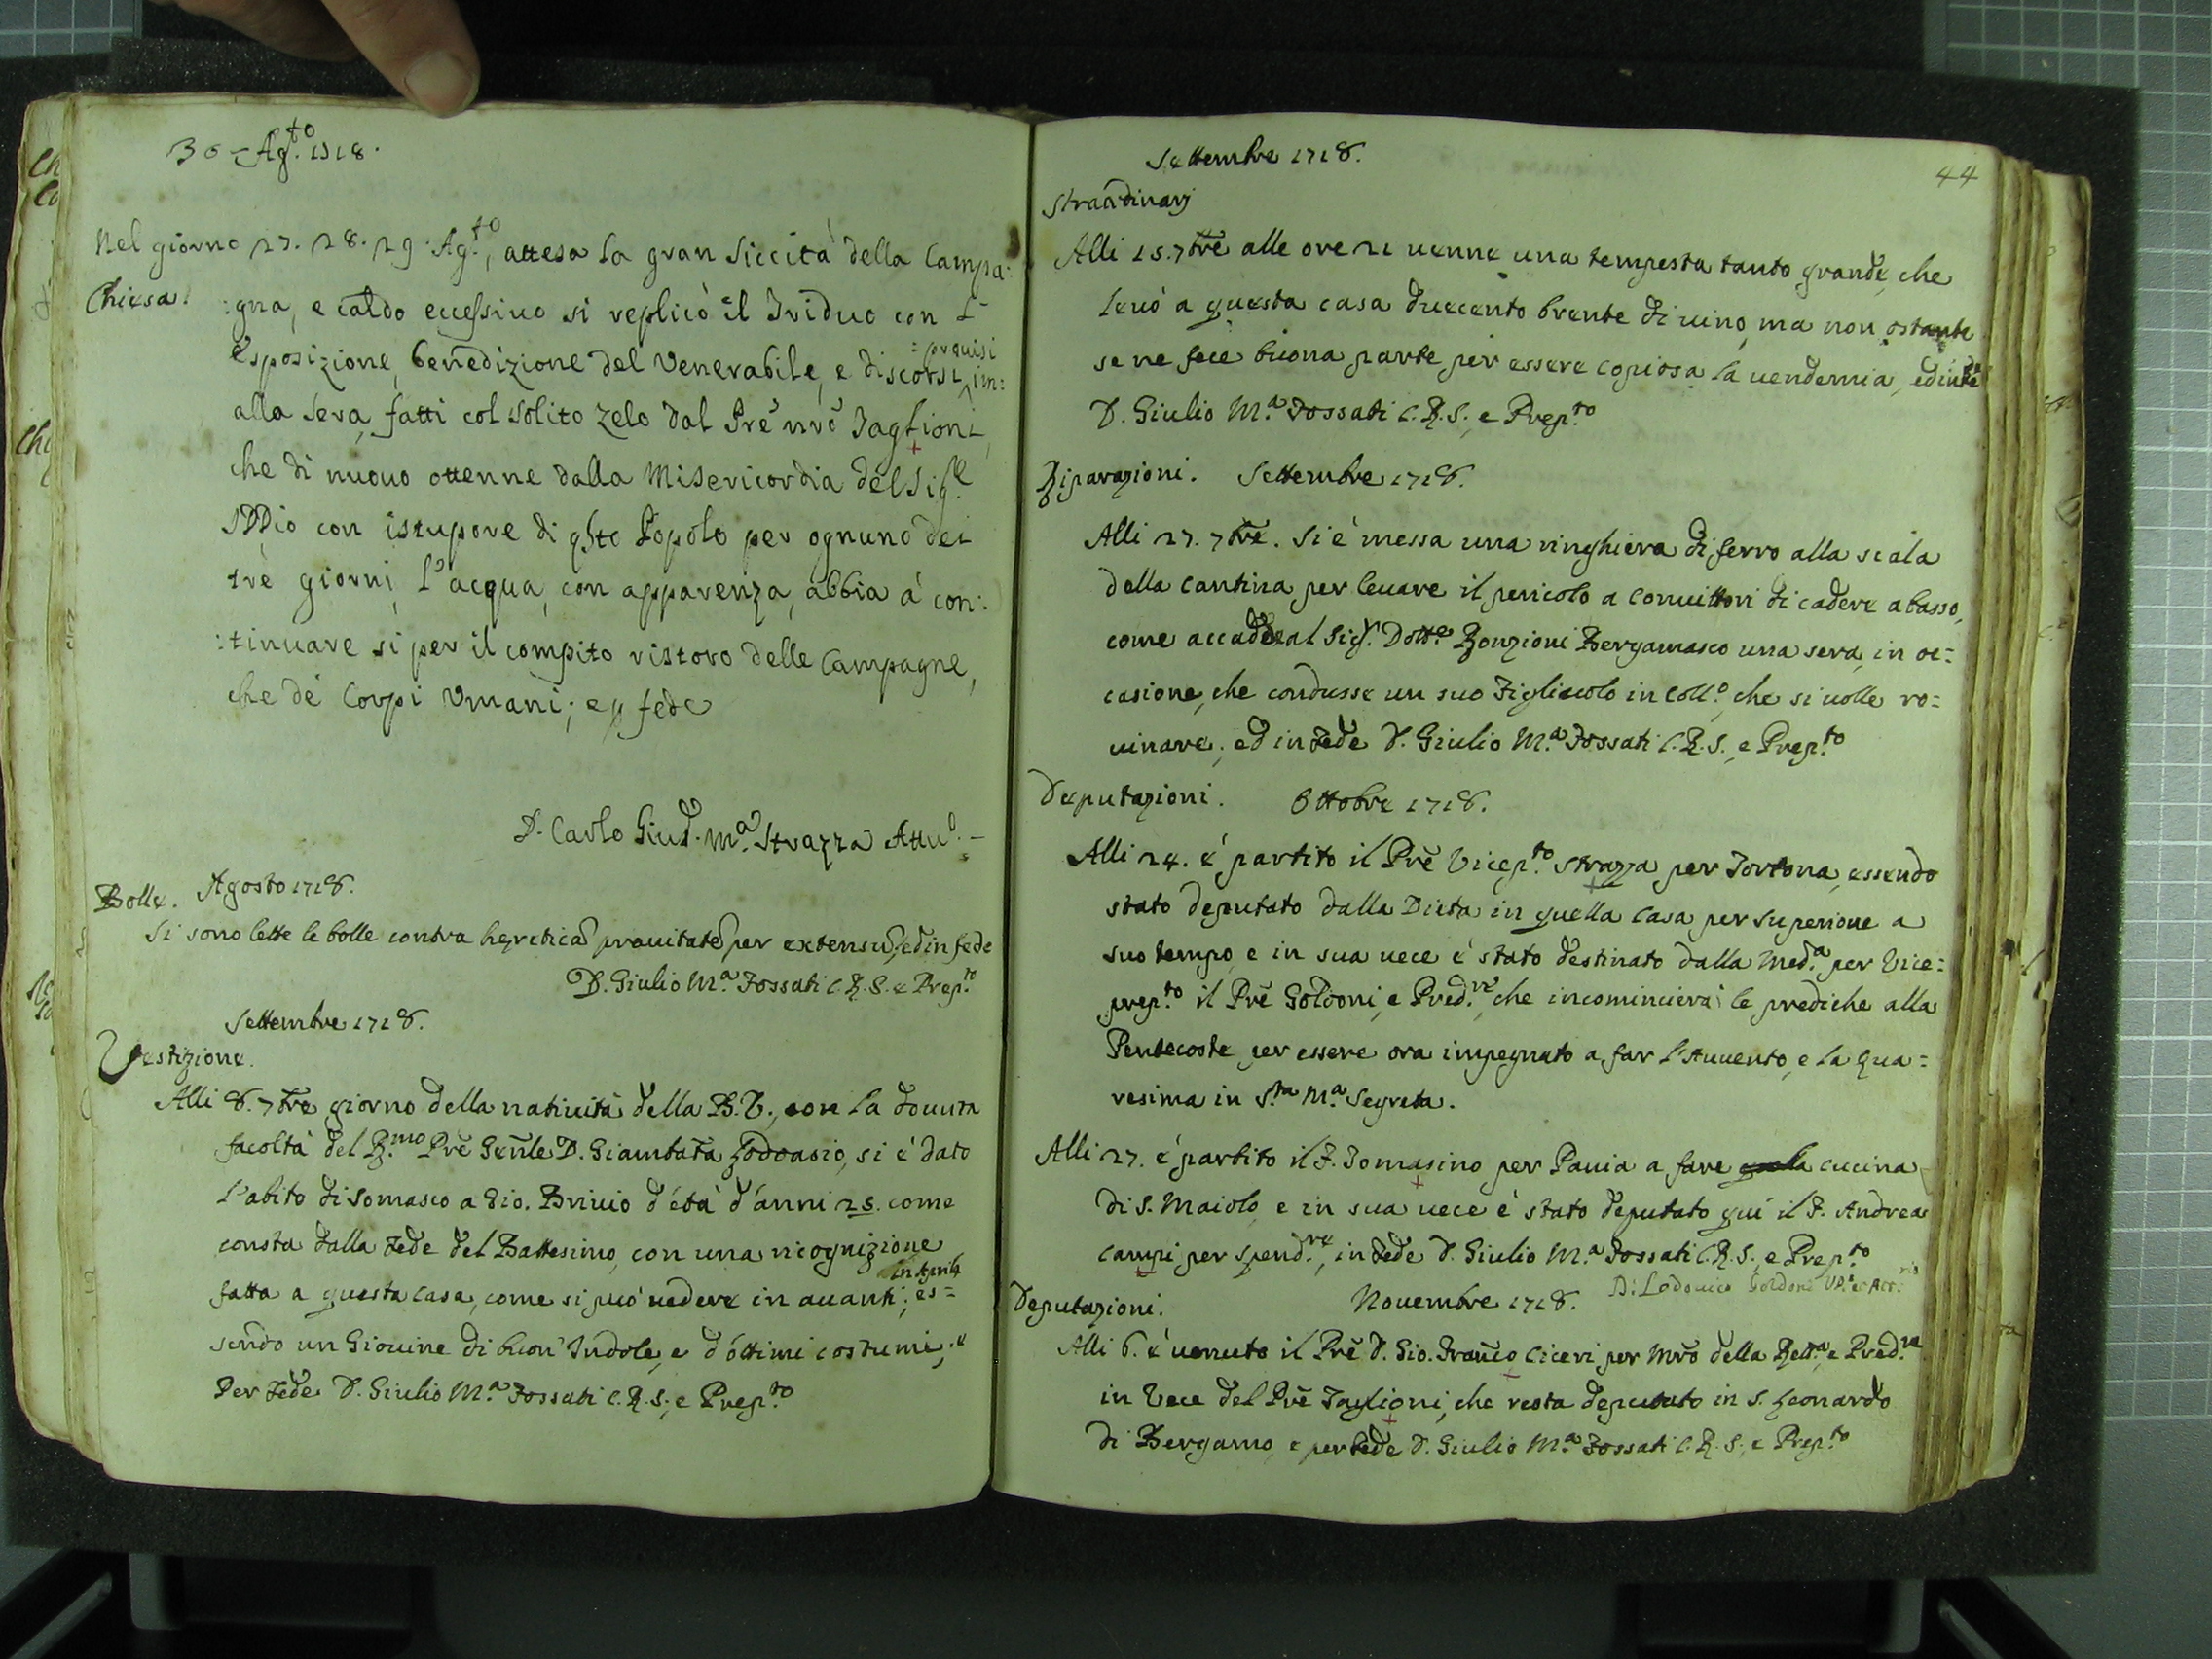 30 Ag.to 1718.
Nel giorno 27. 28. 29. Ag.to, attesa la gran siccità della Campa:
Chiesa. :gna, e caldo eccessivo si replicò il Triduo con l'
esposizione, benedizione del Venerabile, e discorsi im:
:provisi
alla sera, fatti col solito zelo dal Prê nrõ Taglioni,
che di nuovo ottenne dalla Misericordia del Sig.re
IDDio con istupore di qsto Popolo per ognuno dei
trè giorni, l'acqua, con apparenza, abbia à con:
:tinuare si per il compito ristoro delle Campagne,
che de' Corpi Umani; e p fede
D. Carlo Gius. M.a Strazza Attu.o
Bolle. Agosto 1718.
Si sono lette le bolle contra hereticã pravitatẽ per extensũ, ed in fede
D. Giulio M.a Fossati C.R.S. e Prep.to
Settembre 1718.
Vestizione.
Alli 8. 7bre giorno della natività della B.V., con la dovuta
facoltà del R.mo Prê Gen̄le D. Giambatã Lodoasio, si è dato
l'abito di Somasco a Gio. Brivio d'età d'anni 25. come
consta dalla Fede del Battesimo, con una ricognizione
in Aprile
fatta a questa casa, come si può vedere in avanti; es=
sendo un Giovine di buon' Indole, e d'ottimi costumi; e
Per Fede D. Giulio M.a Fossati C.R.S., e Prep.to
44
Settembre 1718.
Straõrdinarj
Alli 15. 7bre alle ore 21 venne una tempesta tanto grande, che
levò a questa casa duecento brente di vino, ma non ostante
se ne fece buona parte per essere copiosa la vendemia, ed in fede
D. Giulio M.a Fossati C.R.S., e Prep.to
Riparazioni. Settembre 1718.
Alli 27. 7bre. Si è messa una ringhiera di ferro alla scala
della cantina per levare il pericolo a Convittori di cadere abasso,
come accadde al Sig.r Dott.e Ronzioni Bergamasco una sera, in oc=
casione, che condusse un suo Figliuolo in Coll.o, che si volle ro=
vinare; ed in Fede D. Giulio M.a Fossati C.R.S., e Prep.to
Deputazioni. Ottobre 1718.
Alli 24. è partito il Prê Vicep.to Strazza per Tortona, essendo
stato deputato dalla Dieta in quella casa per superiore a
suo tempo, e in sua vece è stato destinato dalla Med.a per Vice=
prep.to il Prê Goldoni, e Pred.re, che incomincierà le prediche alla
Pentecoste per essere ora impegnato a far l'Avvento, e la Qua=
resima in S.ta M.a Segreta.
Alli 27. è partito il F. Tomasino per Pavia a fare cucina
di S. Maiolo, e in sua vece è stato deputato quì il F. Andrea
Campi per spend.re, in Fede D. Giulio M.a Fossati C.R.S., e Prep.to
D. Lodovico Goldoni VP.to e Att.rio
Deputazioni. Novembre 1718.
Alli 6. è venuto il Prê D. Gio. Franco Ciceri per Mrõ della Rett.a, e Pred.re
in Vece del Prê Taglioni, che resta deputato in S. Leonardo
di Bergamo, e per fede D. Giulio M.a Fossati C.R.S., e Prep.to